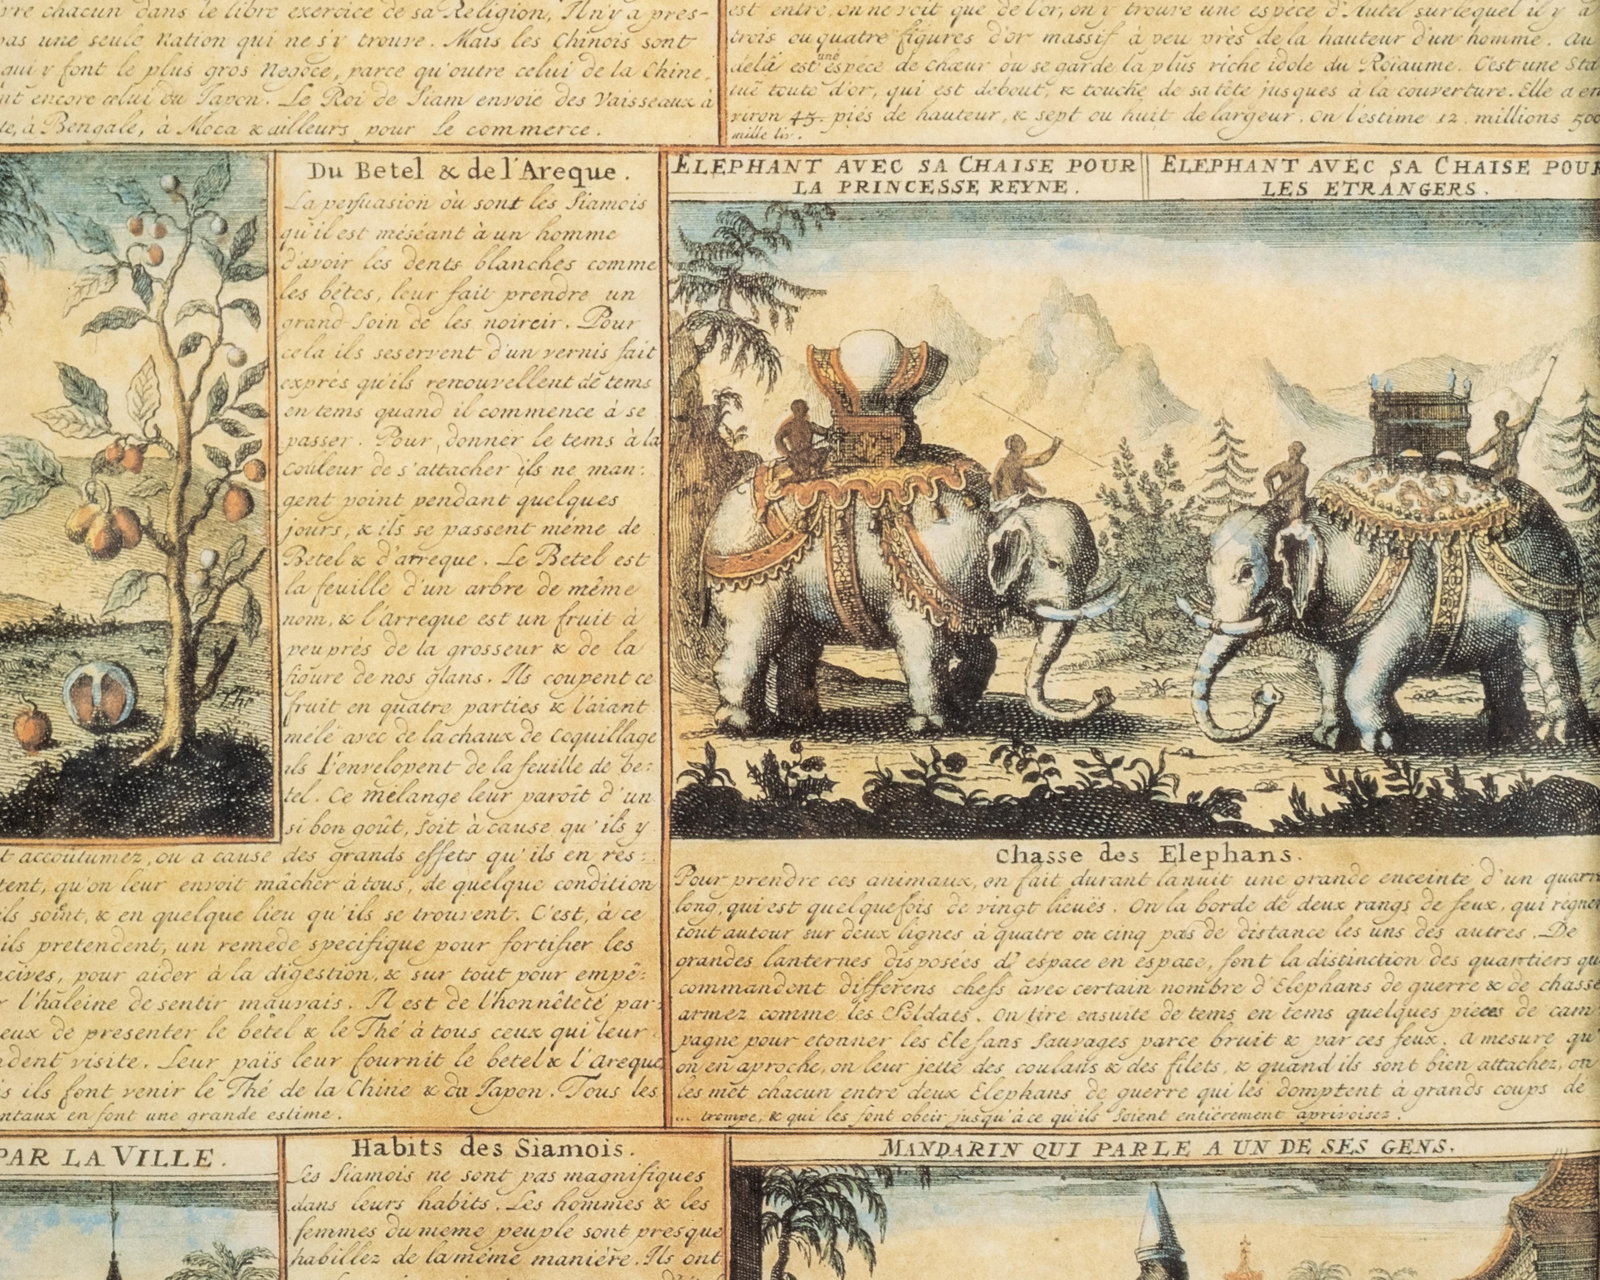 vre chacun dans le libre exercice de sa Religion, Il n'y a pres-
pas une seule Nation qui ne s'y trouve. Mais les Chinois sont
qui y font le plus gros Negoce, parce qu'outre celui de la Chine,
ont encore celui du Japon. Le Roi de Siam envoie des Vaisseaux à
te, à Bengale, à Moca & ailleurs pour le commerce.
est entré, on ne voit que de l'or, on y trouve une espéce d'Autel sur lequel il y a
trois ou quatre figures d'or massif à peu près de la hauteur d'un homme. Au
delà est une espéce de chœur ou se garde la plus riche idole du Roiaume. C'est une Sta
tuë toute d'or, qui est debout, & touche de sa tête jusques à la couverture. Elle a en
viron 45. piés de hauteur, & sept ou huit de largeur. On l'estime 12. millions 500
mille liv.
Du Betel & de l'Areque.
La persuasion où sont les Siamois
qu'il est méséant à un homme
d'avoir les dents blanches comme
les bêtes, leur fait prendre un
grand soin de les noircir. Pour
cela ils se servent d'un vernis fait
exprés qu'ils renouvellent de tems
en tems quand il commence à se
passer. Pour donner le tems à la
couleur de s'attacher ils ne man:
gent point pendant quelques
jours, & ils se passent même de
Betel & d'arreque. Le Betel est
la feuille d'un arbre de même
nom, & l'arreque est un fruit à
peu prés de la grosseur & de la
figure de nos glans. Ils coupent ce
fruit en quatre parties & l'aiant
mêlé avec de la chaux de Coquillage
ils l'envelopent de la feuille de be:
tel. Ce mélange leur paroît d'un
si bon goût, soit à cause qu'ils y
t accoûtumez, ou a cause des grands effets qu'ils en res:
tent, qu'on leur envoit mâcher à tous, de quelque condition
ils soint, & en quelque lieu qu'ils se trouvent. C'est, à ce
ils pretendent, un remede specifique pour fortifier les
ncives, pour aider à la digestion, & sur tout pour empê:
r l'haleine de sentir mauvais. Il est de l'honnêteté par:
eux de presenter le bétel & le Thé à tous ceux qui leur
ndent visite. Leur païs leur fournit le betel & l'Areque
is ils font venir le Thé de la Chine & du Japon. Tous les
ntaux en font une grande estime.
ELEPHANT AVEC SA CHAISE POUR
LA PRINCESSE REYNE.
ELEPHANT AVEC SA CHAISE POUR
LES ETRANGERS.
Chasse des Elephans.
Pour prendre ces animaux, on fait durant la nuit une grande enceinte d'un quarré
long, qui est quelquefois de vingt lieuës. On la borde de deux rangs de feux, qui regnent
tout autour sur deux lignes à quatre ou cinq pas de distance les uns des autres. De
grandes lanternes disposées d'espace en espace, font la distinction des quartiers que
commandent differens chefs avec certain nombre d'Elephans de guerre & de chasse
armez comme les Soldats. On tire ensuite de tems en tems quelques pieces de cam
pagne pour etonner les Elefans Sauvages parce bruit & par ces feux. A mesure qu'
on en aproche, on leur jette des coulans & des filets, & quand ils sont bien attachez, on
les met chacun entre deux Elephans de guerre qui les domptent à grands coups de
trompe, & qui les font obeir jusqu'à ce qu'ils soient entiérement aprivoisez.
PAR LA VILLE.
Habits des Siamois.
Les Siamois ne sont pas magnifiques
dans leurs habits. Les hommes & les
femmes du meme peuple sont presque
habillez de la même maniére. Ils ont
MANDARIN QUI PARLE A UN DE SES GENS.